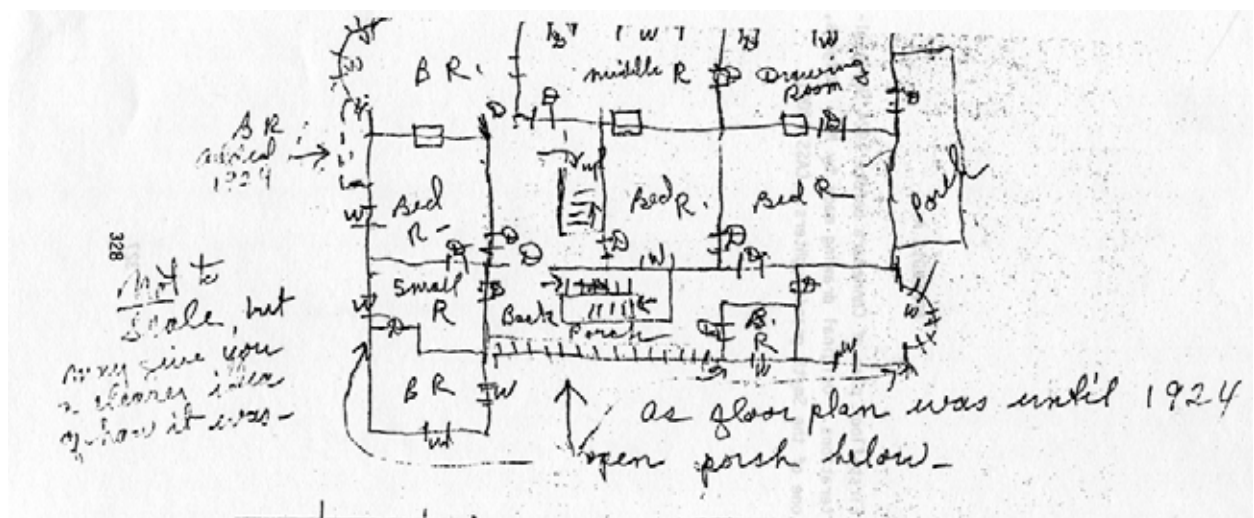 B R.
middle R
Drawing
Room
D
W
D
W
B R.
1924
Porch
up
Bed
R-
Bed
R.
Bed R-
328
Not to
Scale, but
may give you
a clearer idea
of how it was-
Small
R
Back
Porch
B.
R
B R
W
W
as floor plan was until 1924
open porsh below-